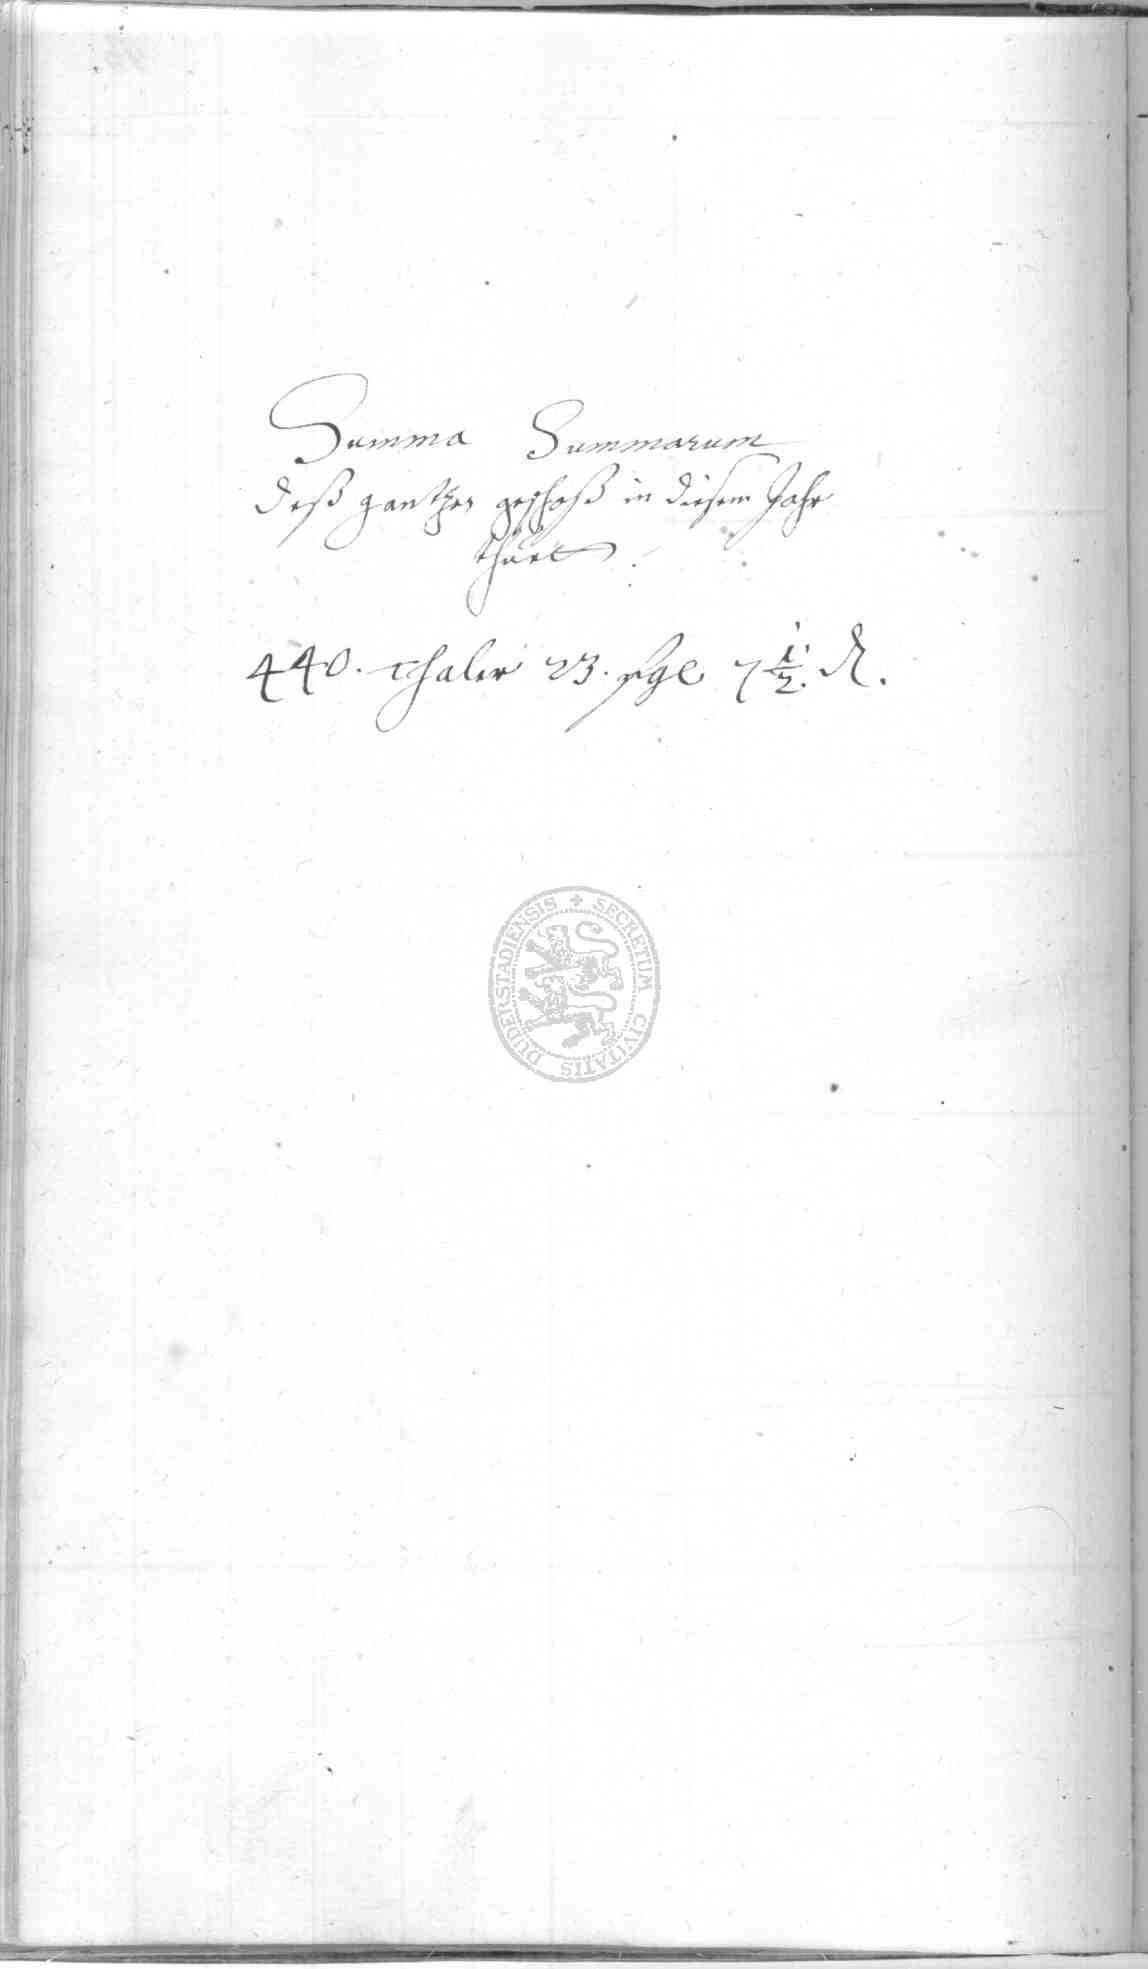 Summa Summarum
deß gantzen geschoß in diesem Jahr
thuet
440. thaler 23. sgl 7 1/2. ₰.
SECRETUM CIVITATIS DUDERSTADIENSIS